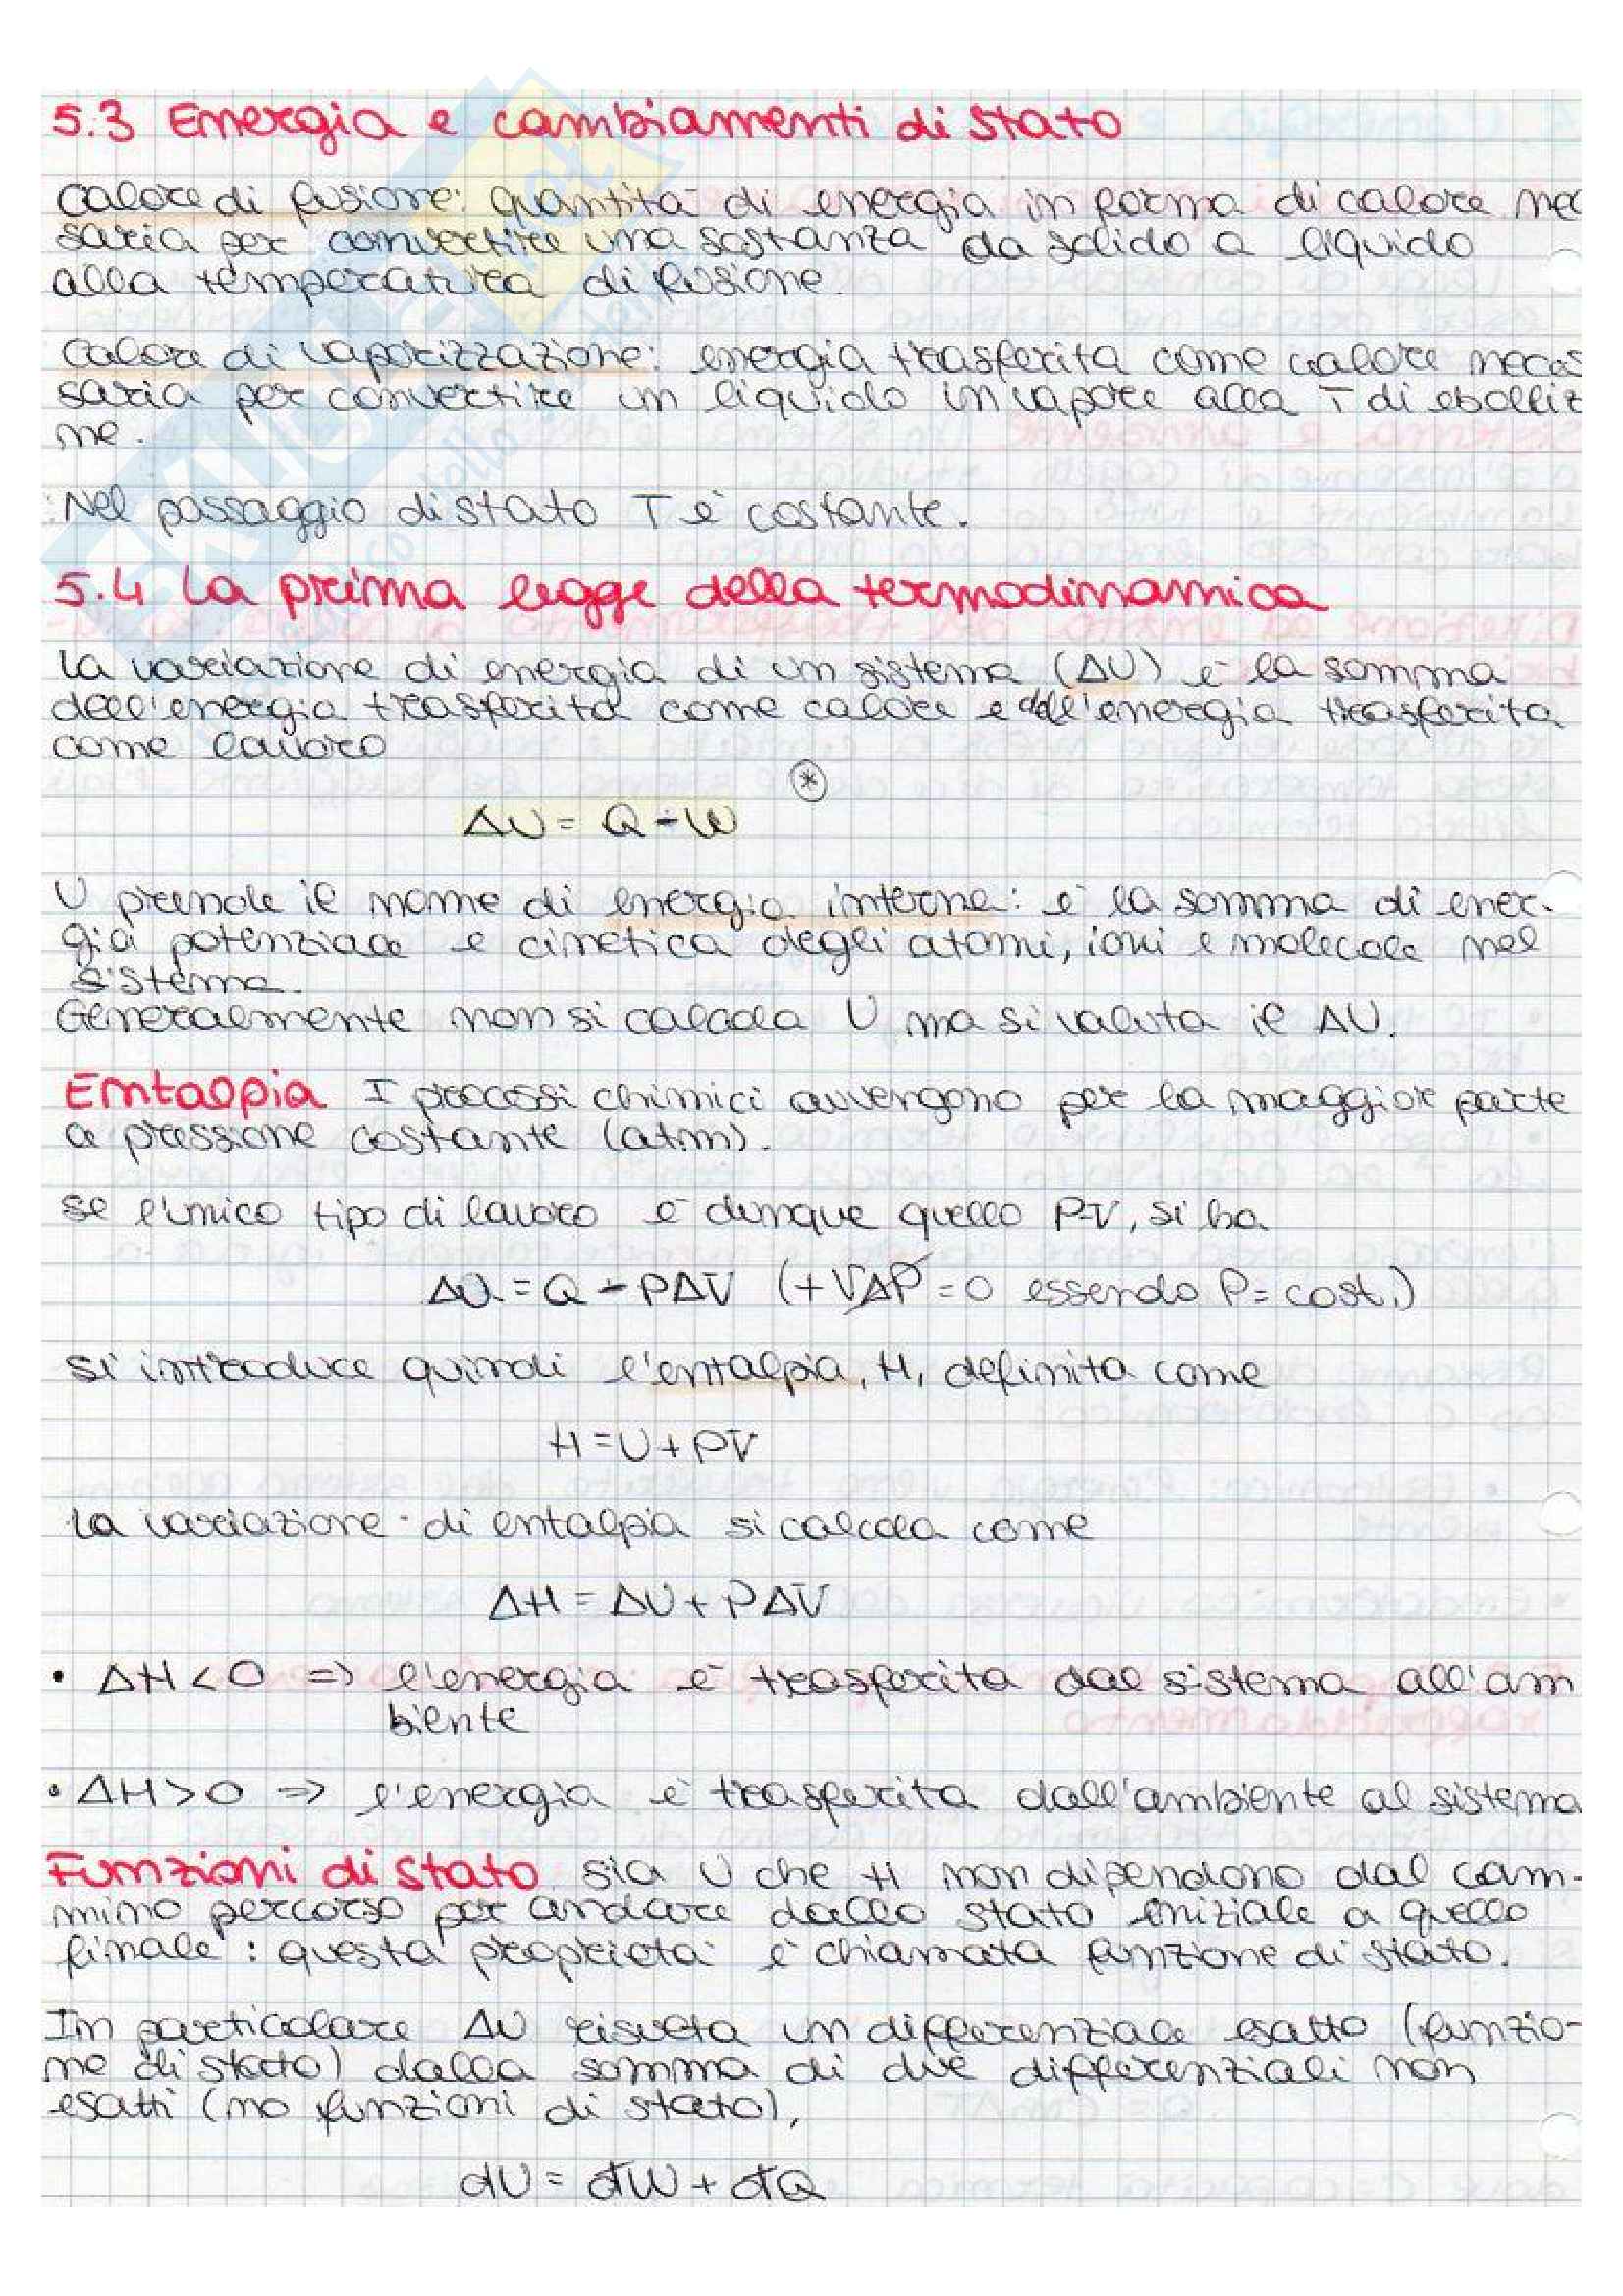 5.3 Energia e cambiamenti di stato
Calore di fusione: quantità di energia in forma di calore nec
saria per convertire una sostanza da solido a liquido
alla temperatura di fusione.
Calore di vaporizzazione: energia trasferita come calore neces
saria per convertire un liquido in vapore alla T di ebolliz
ne.
Nel passaggio di stato T è costante.
5.4 La prima legge della termodinamica
La variazione di energia di un sistema (ΔU) è la somma
dell'energia trasferita come calore e dell'energia trasferita
come lavoro
*
ΔU = Q - W
U prende il nome di energia interna: è la somma di ener-
gia potenziale e cinetica degli atomi, ioni e molecole nel
sistema.
Generalmente non si calcola U ma si valuta il ΔU.
Entalpia I processi chimici avvengono per la maggior parte
a pressione costante (atm).
Se l'unico tipo di lavoro è dunque quello P-V, si ha
ΔU = Q - PΔV (+VΔP = 0 essendo P = cost.)
Si introduce quindi l'entalpia, H, definita come
H = U + PV
La variazione di entalpia si calcola come
ΔH = ΔU + PΔV
• ΔH < 0 => l'energia è trasferita dal sistema all'am
biente
• ΔH > 0 => l'energia è trasferita dall'ambiente al sistema
Funzioni di stato Sia U che H non dipendono dal cam-
mino percorso per andare dallo stato iniziale a quello
finale: questa proprietà è chiamata funzione di stato.
In particolare ΔU risulta un differenziale esatto (funzio-
ne di stato) dalla somma di due differenziali non
esatti (no funzioni di stato),
dU = đW + đQ